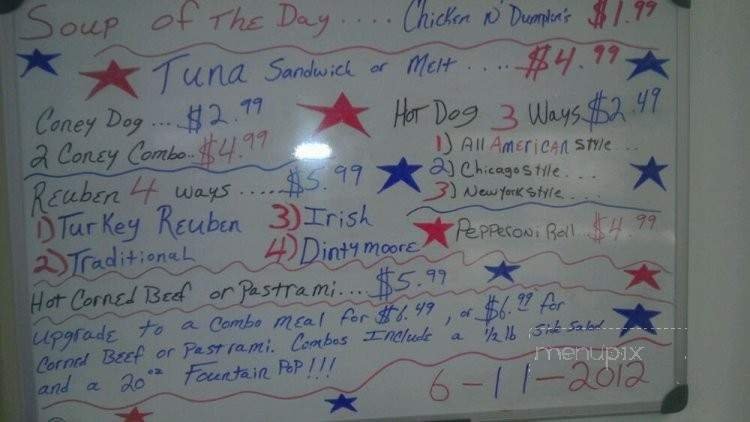 Soup of The Day .... Chicken N' Dumplin's $1.99
Tuna Sandwich or Melt .... $4.99
Coney Dog ... $2.99
2 Coney Combo.. $4.99
Hot Dog 3 Ways $2.49
1) All American style...
2) Chicago style....
3) New York style....
Reuben 4 ways ..... $5.99
1) Turkey Reuben
2) Traditional
3) Irish
4) Dintymoore
Pepperoni Roll .. $4.99
Hot Corned Beef or Pastrami.... $5.99
upgrade to a combo meal for $6.49, or $6.99 for
Corned Beef or Pastrami. Combos Include a 1/2 lb Side Salad
and a 20oz Fountain Pop!!!
menupix
6-11-2012